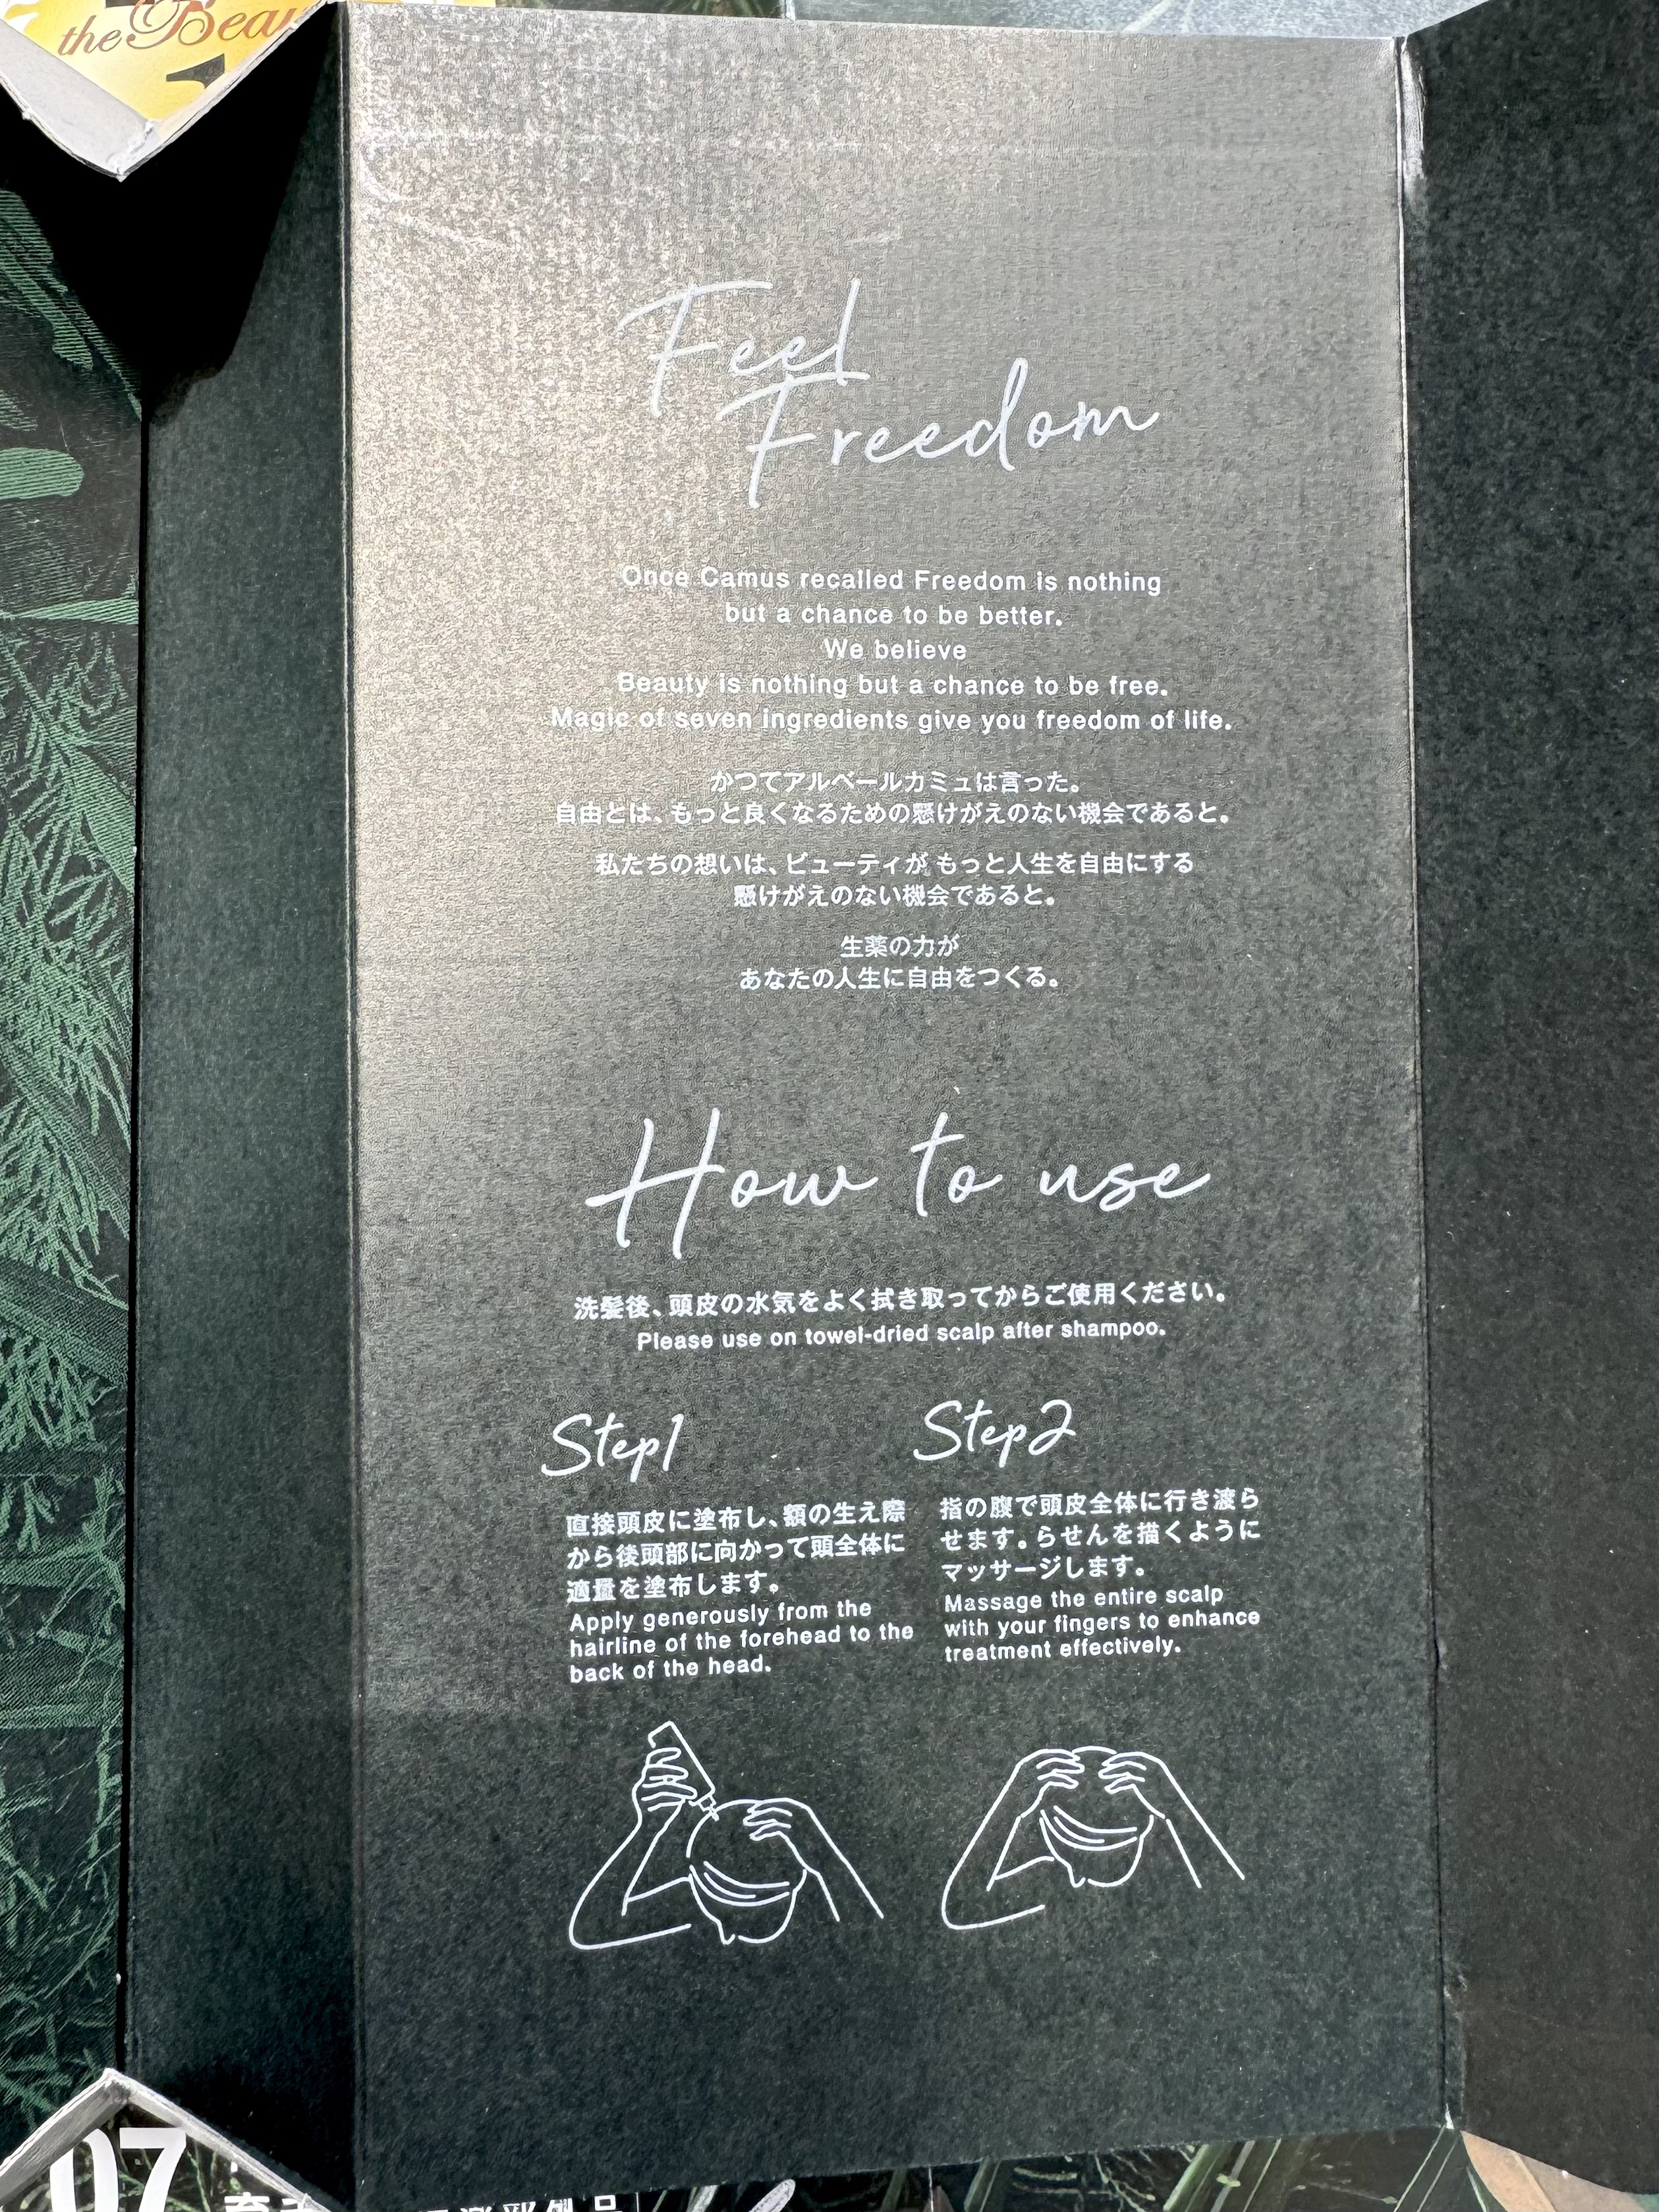 the Beau
Feel
Freedom
Once Camus recalled Freedom is nothing
but a chance to be better.
We believe
Beauty is nothing but a chance to be free.
Magic of seven ingredients give you freedom of life.
かつてアルベールカミュは言った。
自由とは、もっと良くなるための懸けがえのない機会であると。
私たちの想いは、ビューティが もっと人生を自由にする
懸けがえのない機会であると。
生薬の力が
あなたの人生に自由をつくる。
How to use
洗髪後、頭皮の水気をよく拭き取ってからご使用ください。
Please use on towel-dried scalp after shampoo.
Step1
直接頭皮に塗布し、額の生え際
から後頭部に向かって頭全体に
適量を塗布します。
Apply generously from the
hairline of the forehead to the
back of the head.
Step2
指の腹で頭皮全体に行き渡ら
せます。らせんを描くように
マッサージします。
Massage the entire scalp
with your fingers to enhance
treatment effectively.
07